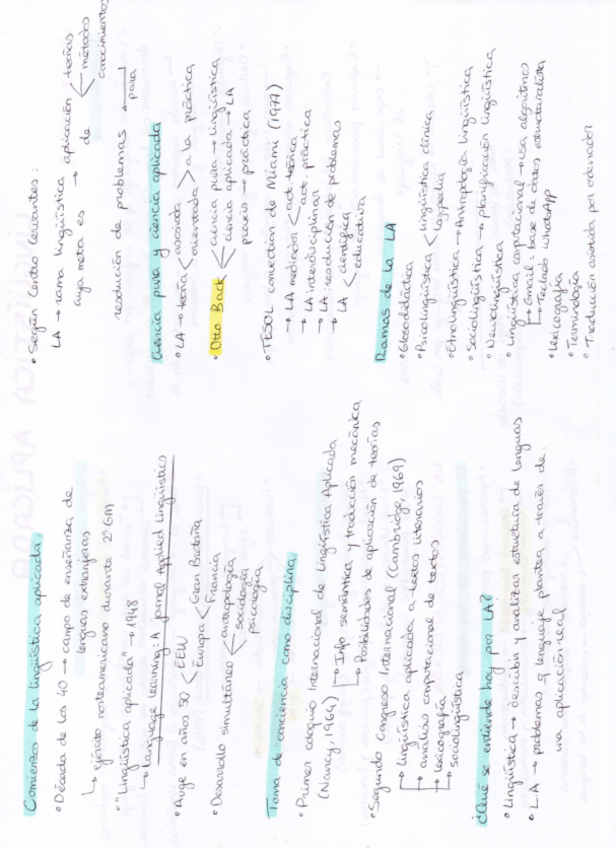 Comienzos de la lingüística aplicada
• Década de los 40 → campo de enseñanza de
lenguas extranjeras
↳ Ejército norteamericano durante 2ª GM
• "Lingüística aplicada" → 1948
↳ Language learning: A jornal Applied Linguistics
• Auge en años 50 < EEUU
Europa < Gran Bretaña
Francia
• Desarrollo simultáneo < antropología
sociología
psicología
Toma de conciencia como disciplina
• Primer coloquio Internacional de Lingüística Aplicada
(Nancy, 1964) → Info semántica y traducción mecánica
→ Posibilidades de aplicación de teorías
• Segundo Congreso Internacional (Cambridge, 1969)
→ lingüística aplicada a textos literarios
→ análisis computacional de textos
→ lexicografía
→ sociolingüística
¿Qué se entiende hoy por LA?
• Lingüística → describir y analizar estructura de lenguas
• L.A → problemas q lenguaje plantea a través de
una aplicación real
• Según Centro Cervantes:
LA → rama lingüística
cuya meta es → aplicación de < teorías
métodos
conocimientos
para
resolución de problemas
Ciencia pura y ciencia aplicada
• LA → teoría < asociada
orientada > a la práctica
• Otto Back < ciencia pura → lingüística
ciencia aplicada → LA
praxis → práctica
• TESOL convection de Miami (1977)
→ LA mediador < act. teórica
act. práctica
→ LA interdisciplinar
→ LA: resolución de problemas
→ LA < científica
educativa
Ramas de la LA
• Glosodidáctica
• Psicolingüística < lingüística clínica
logopedia
• Etnolingüística → Antropología lingüística
• Sociolingüística → planificación lingüística
• Neurolingüística
• Lingüística computacional → usa algoritmos
→ Gmail: base de datos estructuralista
→ Teclado WhatsApp
• Lexicografía
• Terminología
• Traducción asistida por ordenador